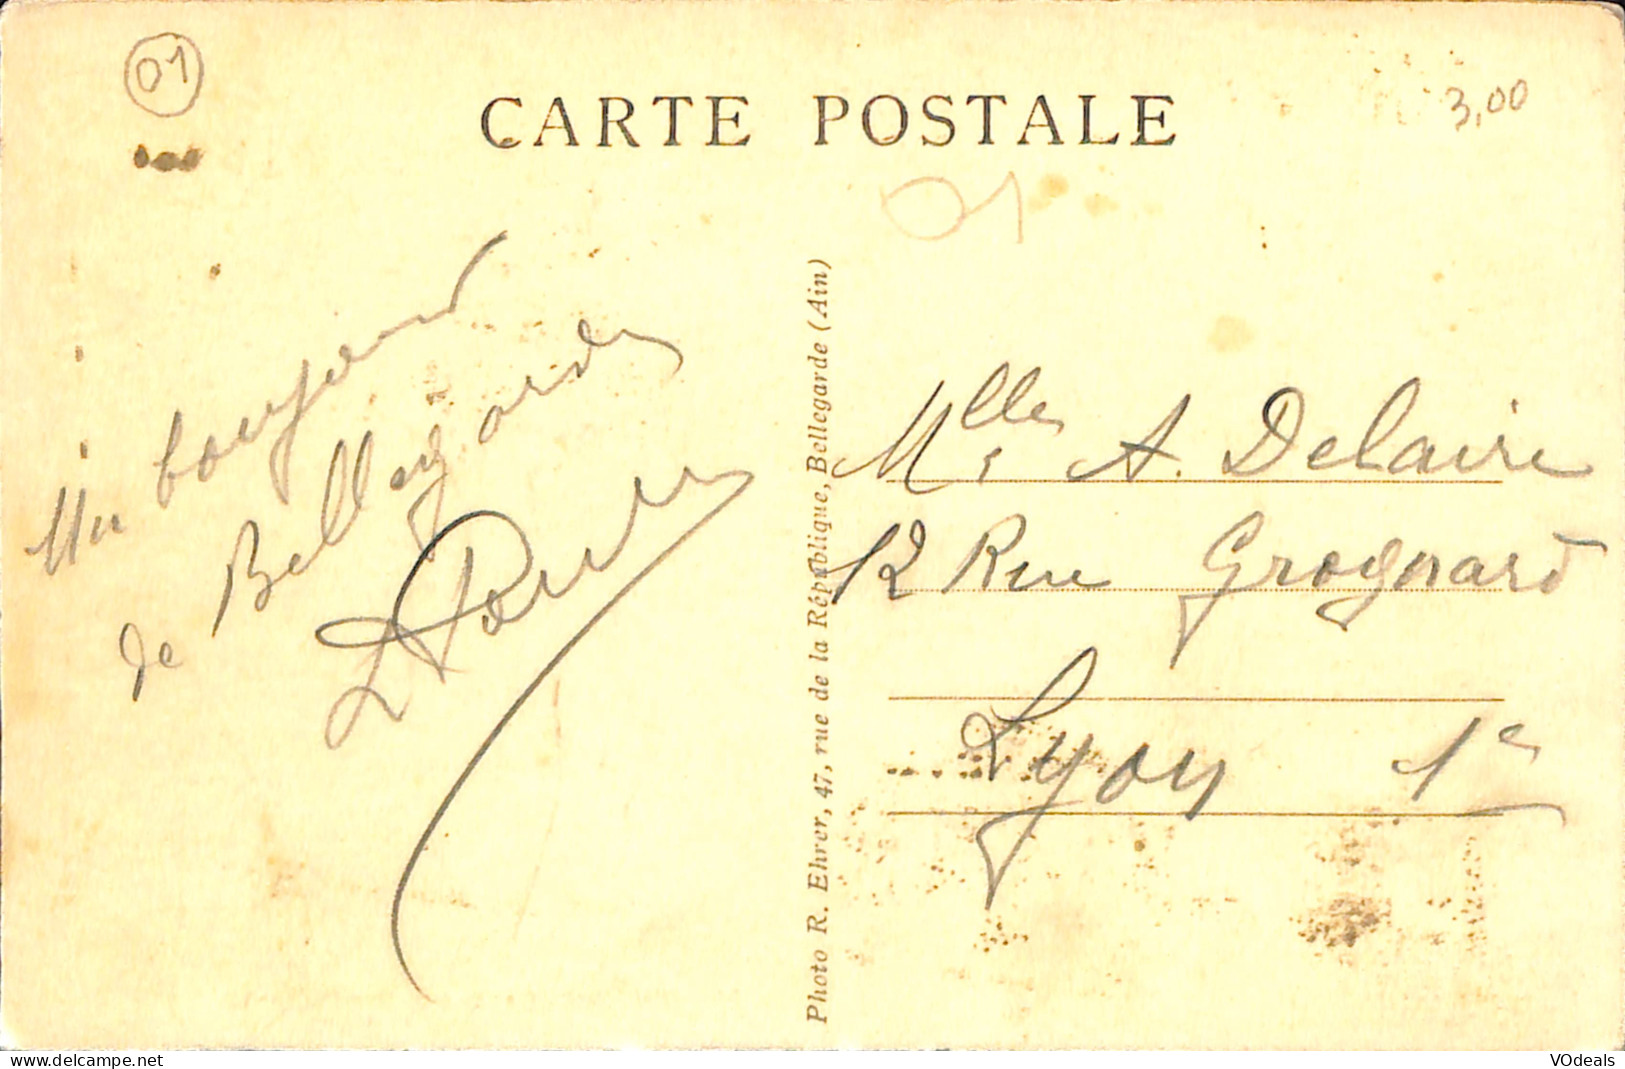 01
CARTE POSTALE
3,00
01
Un bonjour
de Bellegarde
Photo R. Ehrer, 47, rue de la République, Bellegarde (Ain)
Mlle A. Delaire
12 Rue Grognard
Lyon 1e
www.delcampe.net
VOdeals